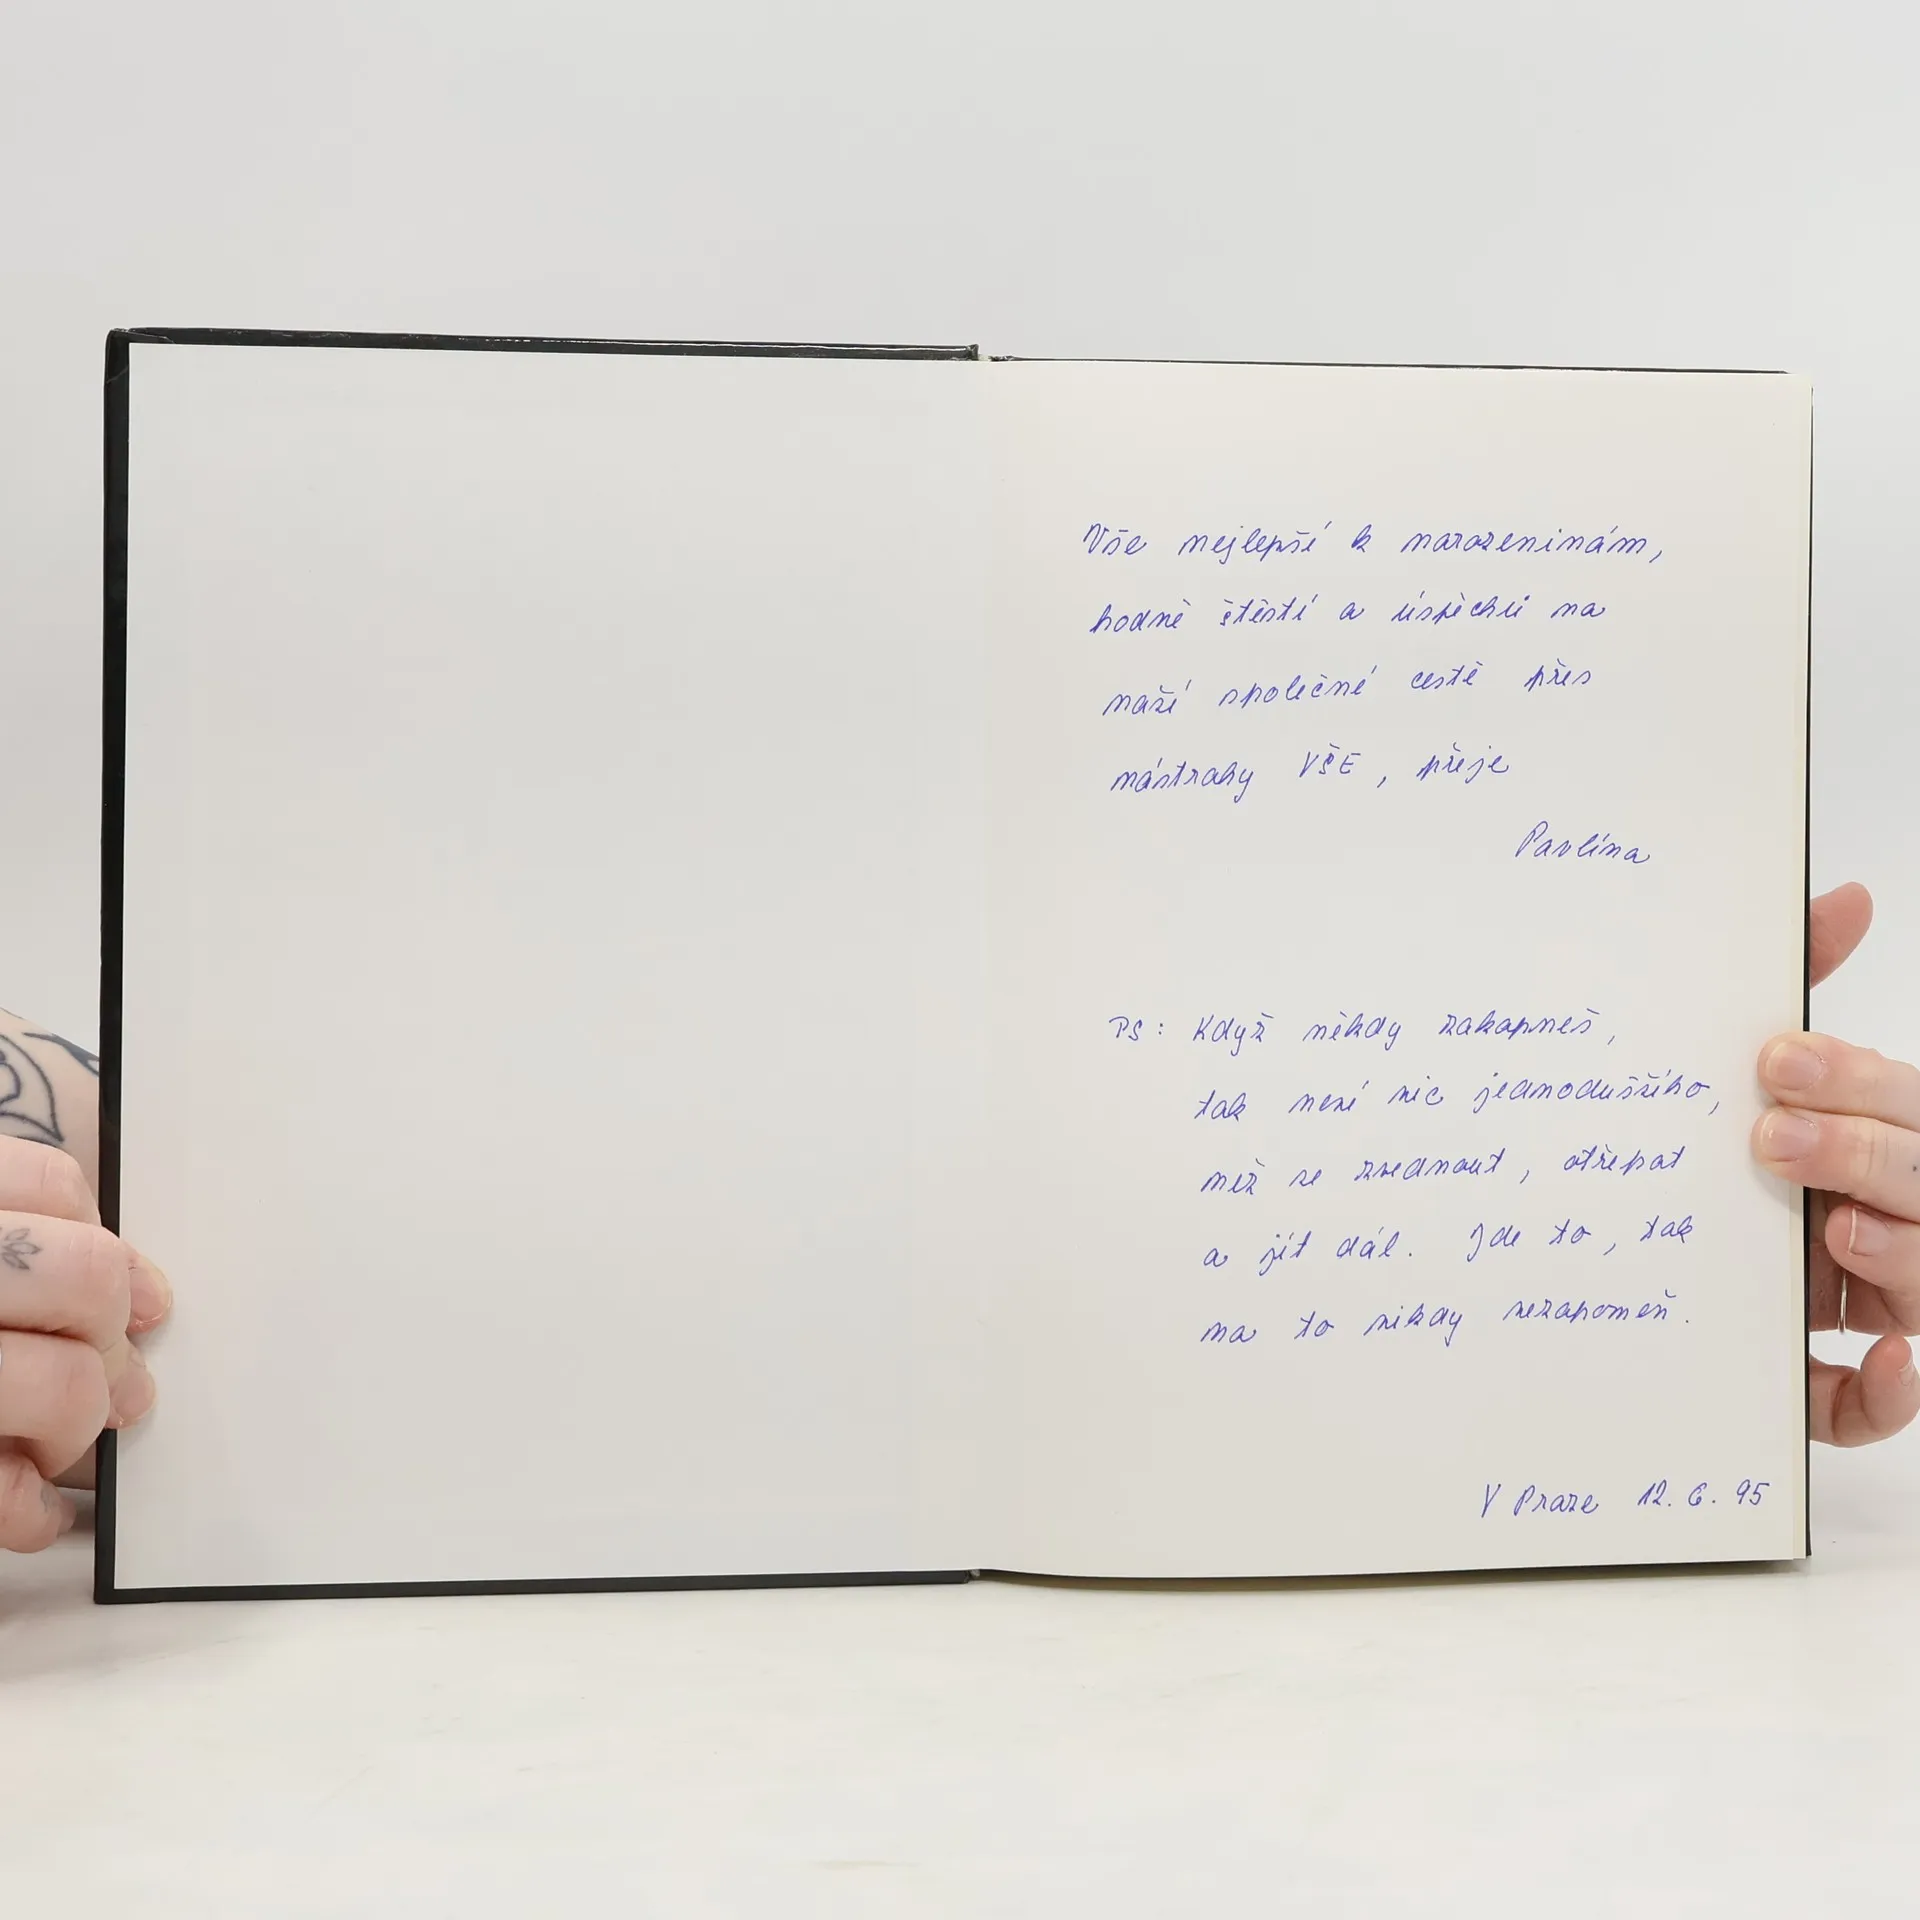 Vše nejlepší k narozeninám,
hodně štěstí a úspěchů na
naší společné cestě přes
nástrahy VŠE, přeje
Pavlína
PS: Když někdy zakopneš,
tak není nic jednoduššího,
než se zvednout, otřepat
a jít dál. Jde to, tak
na to nikdy nezapomeň.
V Praze 12. 6. 95